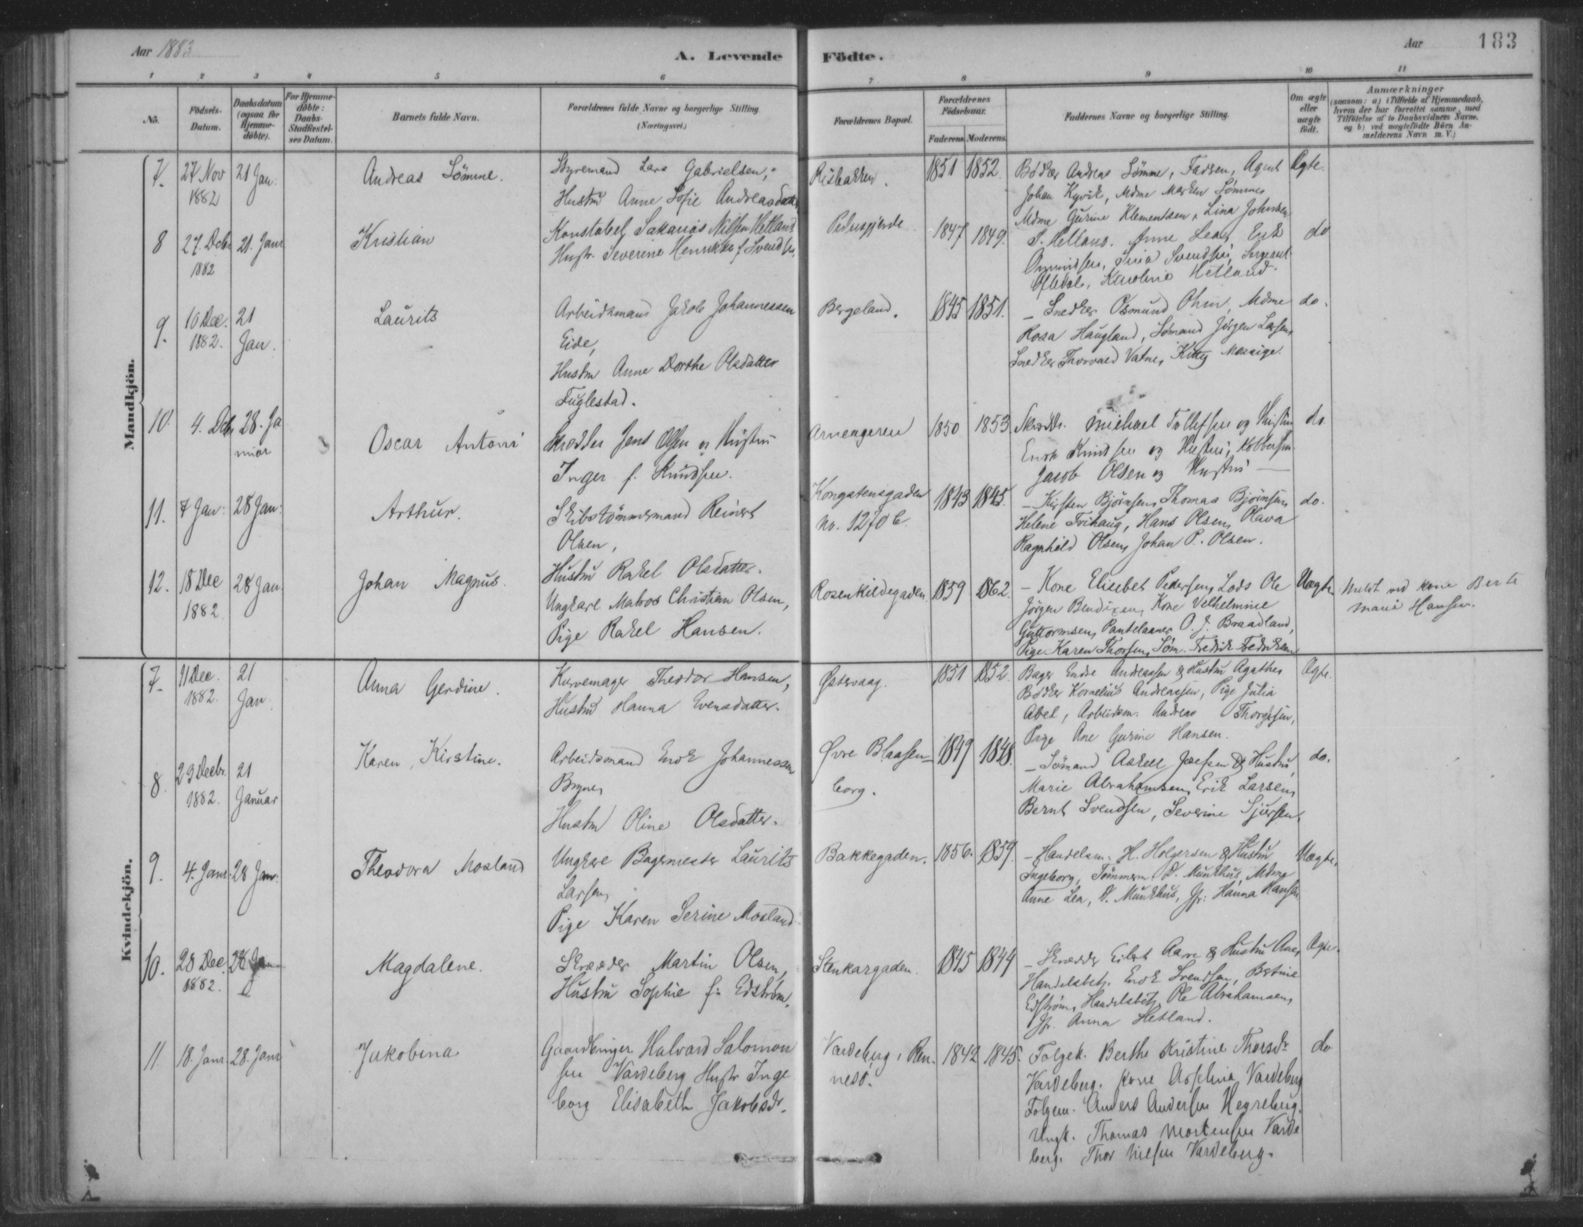 Aar 1883
A. Levende Fødte.
Aar
183
1 2 3 4 5 6 7 8 9 10 11
No.
Fødsels-Datum.
Daabsdatum (ogsaa for Hjemme-døbte).
For Hjemme-døbte: Daabs-Stadfæstel-ses Datum.
Barnets fulde Navn.
Forældrenes fulde Navne og borgerlige Stilling. (Næringsvei.)
Forældrenes Bopæl.
Forældrenes Fødselsaar.
Faderens. Moderens.
Faddernes Navne og borgerlige Stilling.
Om ægte eller uægte født.
Anmærkninger
(saasom: a) i Tilfælde af Hjemmedaab, hvem der har forrettet samme, med Tilføielse af to Daabsvidners Navne, og b) ved uægtefødte Børn An-melderens Navn m. V.)
Mandkjøn.
7. 27 Nov 1882 21 Jan. Andreas Sömme.
Styremand Lars Gabrielsen,
Hustru Anne Sofie Andreasdatter
1851 1852.
Bödker Andreas Sömme, Agent
Johan Kyvik, Mdme Marten Sömmes
Mdme Gurine Klementsen, Lina Johnsen
Ægte.
8 27. Decbr 1882 21. Janr Kristian
Konstabel Sakarias Nilsen Hetland
Hustr. Severine Henrikke f. Svendsen
Pedersgjerde
1847 1849.
S. Hetland. Anne Lear, Erik
Ommundsen, Svendsen, Sergeant
Oftedal, Karoline Hetland.
do
9. 10 Dec. 1882. 21 Jan. Laurits
Arbeidsmand Jakob Johannessen
Eide,
Hustru Anne Dorthe Olsdatter
Fuglestad.
Bergeland.
1845 1851.
– Snedker Osmund Ohm, Mdme
Rosa Haugland, Sömand Jörgen Larsen,
Snedker Thorvald Vatne, Kitty Massige.
do.
10. 4. Dcbr 28. Januar Oscar Antoni
Skrædder Jens Olsen og Hustru
Inger f. Knudsen.
Arneageren
1850 1853
Skrædder. Michael Tollefsen og Hustru
Enok Knudsen og Hustru,
Jacob Olsen og Hustru –
do
11. 7 Jan. 28 Jan. Arthur.
Skibstömmermand Reinert
Olsen,
Hustru Rakel Olsdatter.
Kongstensgaden
No. 1270 b.
1843 1845.
– Kirsten Björnsen, Thomas Björnsen,
Helene Frihaug, Hans Olsen, Olava
Ragnhild Olsen, Johan P. Olsen.
do.
12. 18 Dec 1882 28 Jan. Johan Magnus.
Ungkarl Matros Christian Olsen,
Pige Rakel Hansen.
Rosenkildegaden
1859 1862.
– Kone Elisebet Pedersen, Lods Ole
Jörgen Bendixen, Kone Vilhelmine
Guttormsen, Pantelaaner O. J. Braadland,
Pige Karen Thorsen, Söm. Fredrik Fredriksen
Uægte.
Meldt ved kone Berte
Marie Hansen.
Kvindekjøn.
7. 11 Dec. 1882. 21 Jan. Anna Gerdine.
Kurvemager Theodor Hansen,
Hustru Hanna Evensdatter.
Østervaag.
1851 1852.
Bager Endre Andreassen & Hustru Agathe,
Bödker Kornelius Andreassen, Pige Julia
Abel, Arbeidsm. Andreas Thorgersen,
Pige Ane Gurine Hansen.
Ægte.
8. 29 Decbr. 1882. 21 Januar Karen Kirstine.
Arbeidsmand Enok Johannessen
Bryne,
Hustru Oline Olsdatter.
Øvre Blaasen-
borg.
1849 1848.
– Sömand Askell Josefsen & Hustru,
Marie Abrahamsen, Erik Larsen,
Bernt Svendsen, Severine Sjursen,
do.
9. 4. Janr 28 Janr. Theodora Mosland
Ungkarl Bagermester Laurits
Larsen,
Pige Karen Serine Mosland.
Bakkegaden.
1856. 1859.
– Handelsm. H. Holgersen & Hustru
Ingeborg, Tömmerm. D. Munkhus, Mdme
Anne Lea, D. Munkhus, Jfr. Hanna Hansen
Uægte.
10. 28 Dec. 1882. 28 Jan Magdalene.
Skrædder Martin Olsen,
Hustru Sophie f. Edström.
Stenkargaden.
1845 1844
– Skrædder Eilert Aare & Hustru Ane,
Handelsbetj. Enok Svendsen, Betnie
Edström, Handelsbetj. Ole Abrahamsen,
Jfr. Anna Hetland.
Ægte.
11 18. Janr 28. Janr Jakobina
Gaardbruger Halvard Salomon
sen Vardeberg Hustr Inge
borg Elisabeth Jakobsdr.
Vardeberg, Ren-
nesö.
1842 1845.
Folgek. Berthe Kristine Thorsdr
Vardeberg. Kone Asseline Vardeberg
Folgem. Anders Andersen Hegreberg.
Ungk. Thomas Mortensen Varde
berg. Thor Nielsen Vardeberg.
do